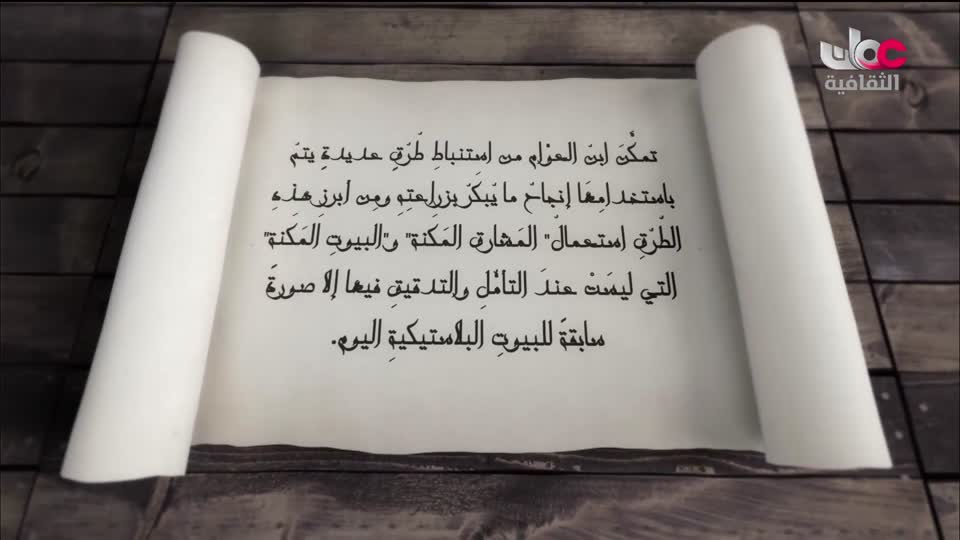 عمان
الثقافية
تمكَّنَ ابنُ العوَّام من اِستنباطِ طُرُقٍ عديدةٍ يتمُّ
باستخدامِهَا إنجاحُ ما يُبكَّرُ بزراعتِهِ ومِن أبرزِ هذِهِ
الطُّرُقِ استعمالُ" المَشارقِ المَكنةِ" و"البيوتِ المَكنةِ"
التي ليسَتْ عندَ التأمُّلِ والتدقيقِ فيها إلا صورةً
سابقةً للبيوتِ البلاستيكيةِ اليوم.